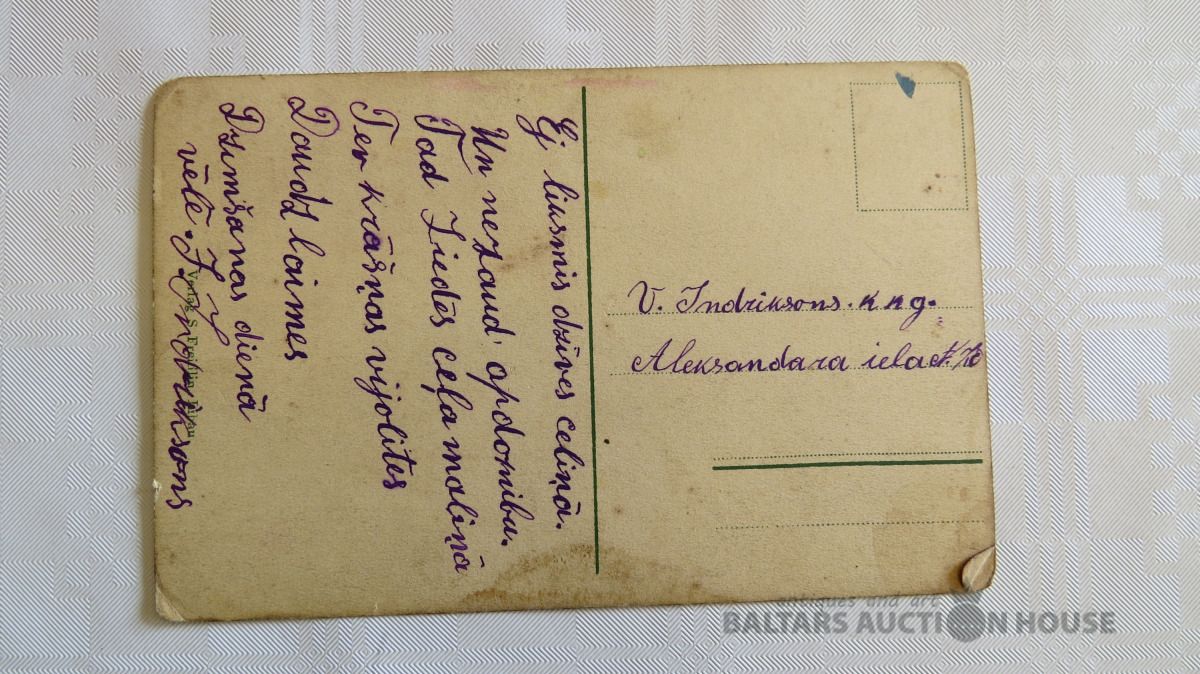 Ej liksmis dzīves celiņā.
Un nezaud' apdomibu.
Tad Ziedēs ceļa maliņā
Ter krāšņas vijolites
Daudz laimes
Dzimšanas dienā
vēlē. J. Indriksons
Verlag S. Freidlin, Libau
V. Indriksons. k kg.
Aleksandara ielā
antiques and art
BALTARS AUCTION HOUSE